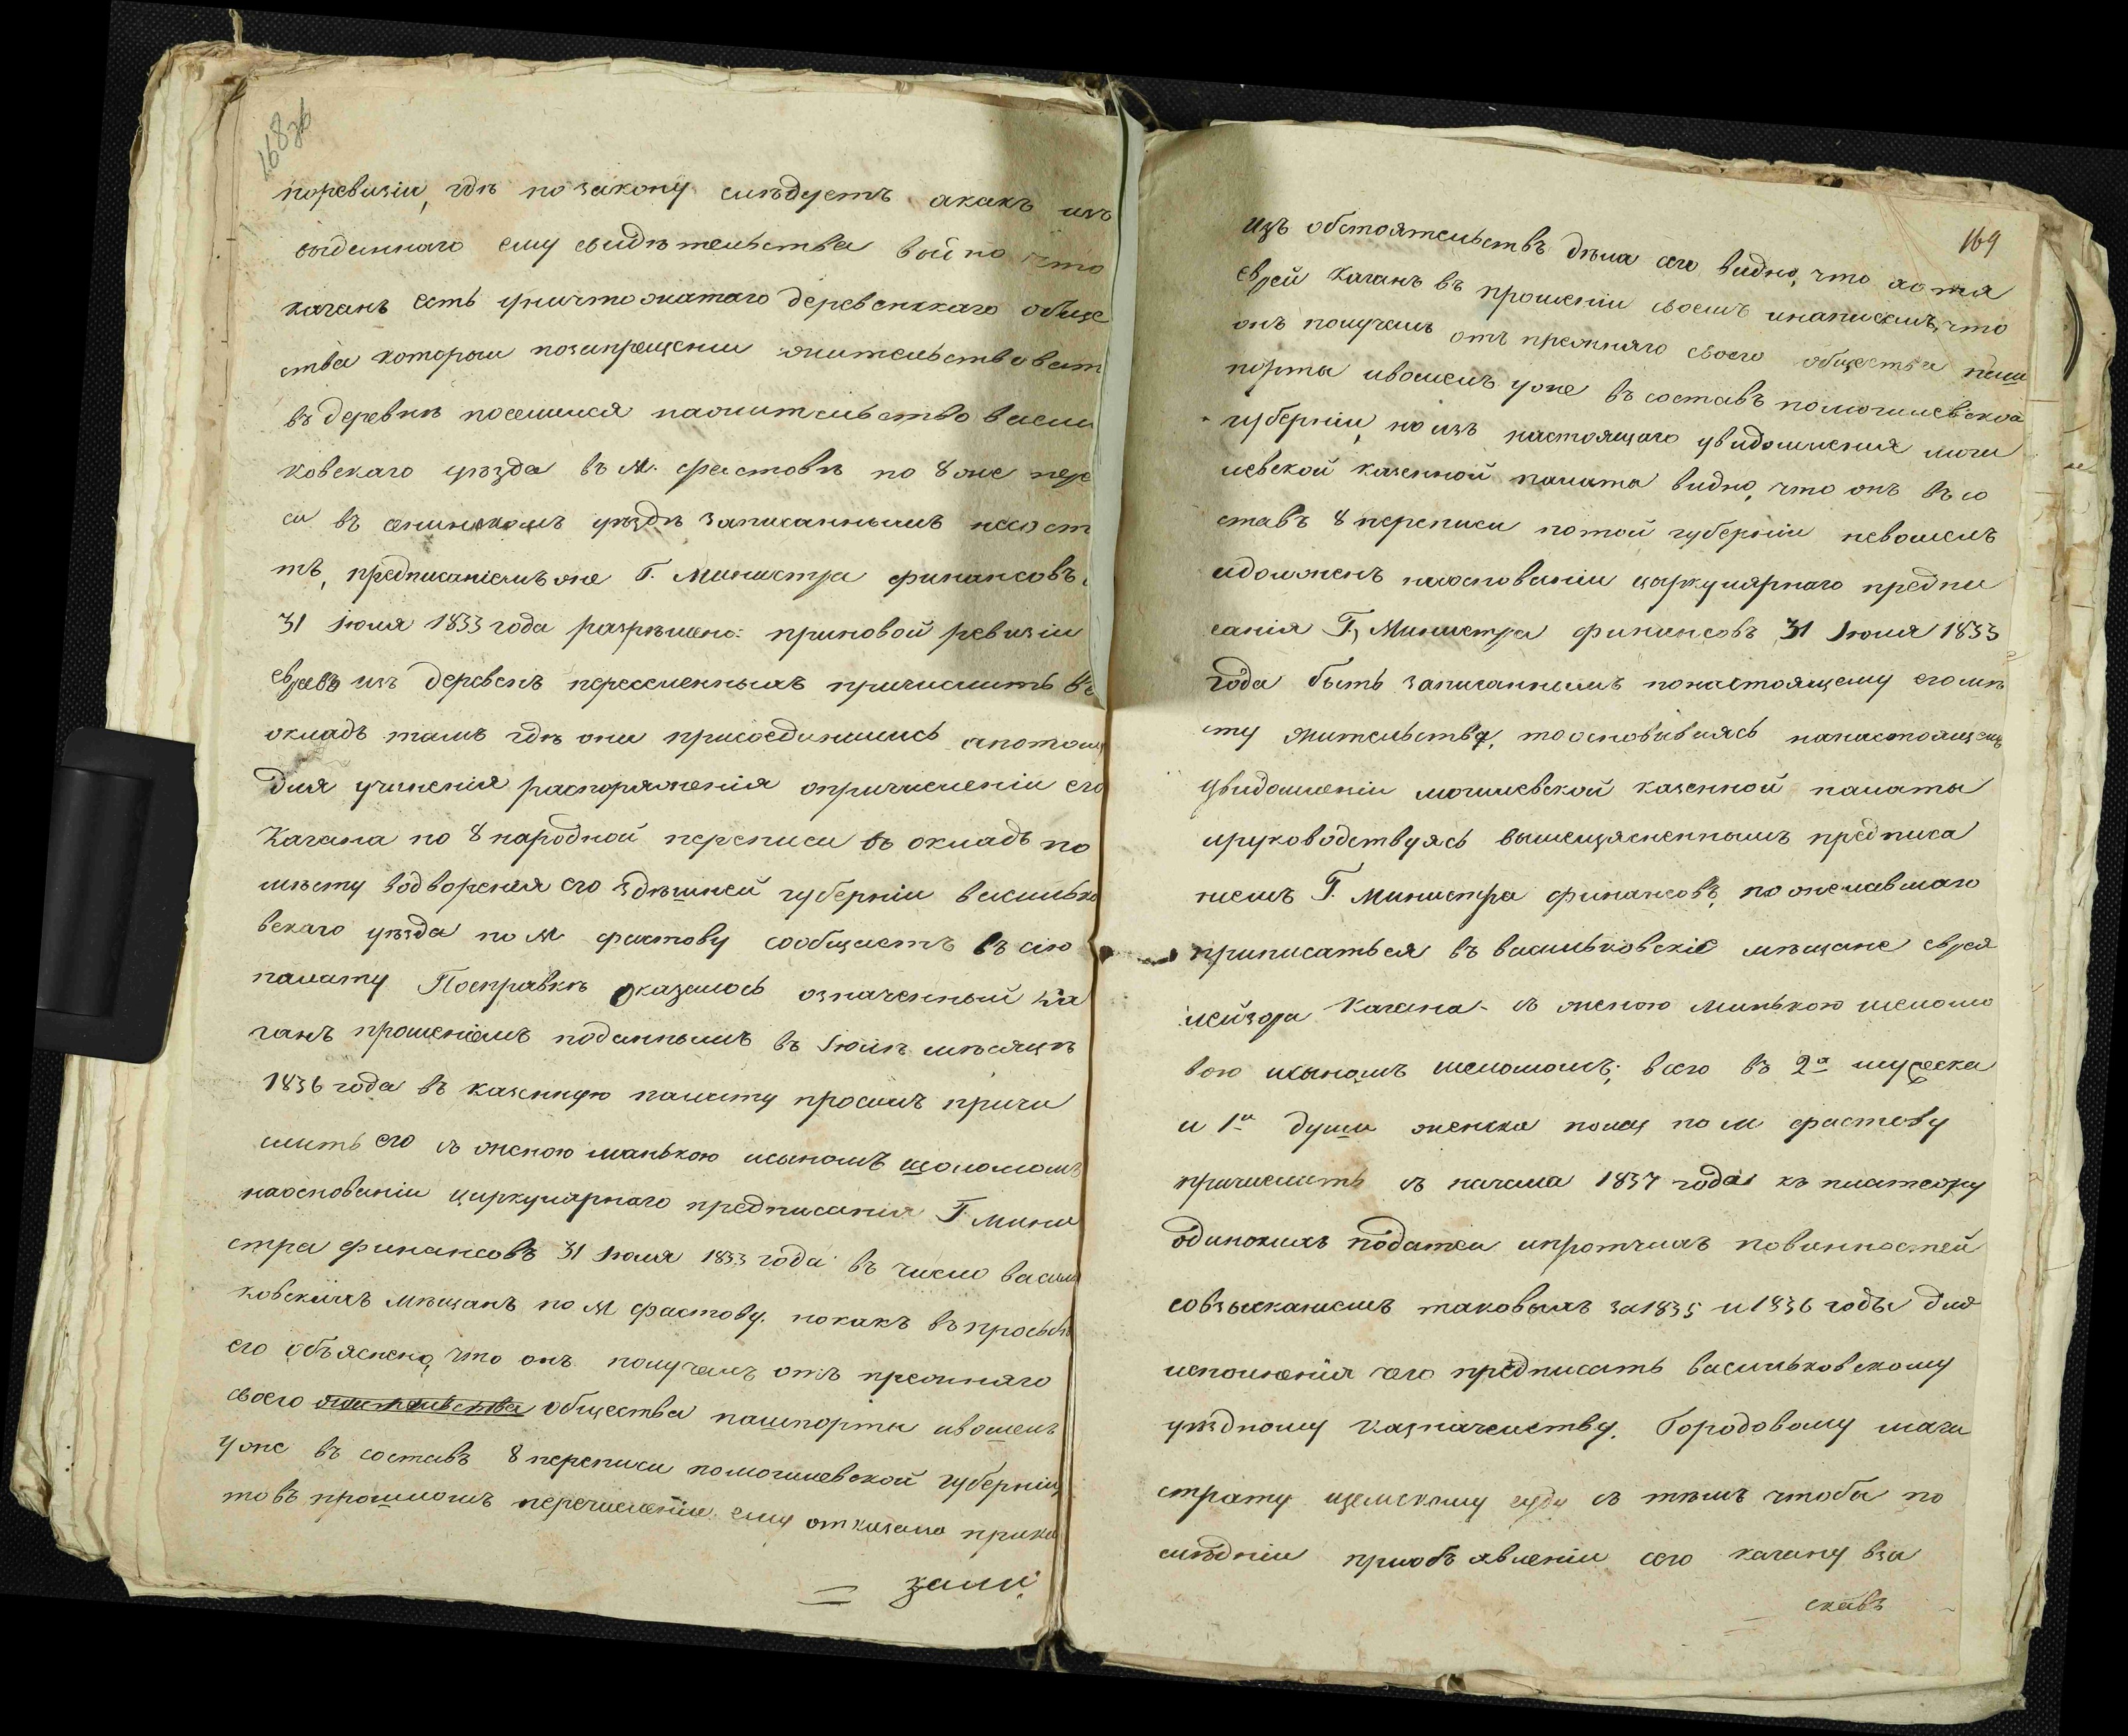 168об
поревизіи, гдѣ по закону слѣдуетъ акакъ изъ
выданнаго ему свидѣтельства видно что
каганъ есть уничтожатаго деревенккаго обще
ства которои позапрещении жительствоват
въ деревнѣ поселился нажительство васил
ковскаго уѣзда въ м. фастовѣ по 8 же пере
си въ сенинскомъ уѣздѣ записаннымъ несост
тъ, предписаніемъ же Г. Министра финансовъ
31 Июля 1833 года разрѣшено: приновой ревизіи
евреевъ изъ деревень переселенныхъ причислить въ
окладъ тамъ гдѣ они присоединились апотому
для учиненія распоряженія опричисленіи его
Кагана по 8 народной переписи въ окладъ по
мѣсту водворенія его здѣшней губерніи василько
вскаго уѣзда по м фастову сообщаетъ въ сію
палату Посправкѣ оказалось означенный ка
ганъ прошеніемъ поданнымъ въ Июлѣ мѣсяцѣ
1836 года въ казенную палату просилъ причи
слить его съ женою манькою исыномъ шоломомъ
наоснованіи циркулярнаго предписанія Г. Мини
стра финансовъ 31 Июля 1833 года въ число васил
ковскихъ мѣщанъ по м фастову. нокакъ въ просьбѣ
его объяснено, что онъ получалъ отъ прежняго
своего жительства общества пашпорты ивошелъ
уже въ составъ 8 переписи помогилевской губерніи
товъ прошломъ перечисленіи ему отказано прика
= зали:
169
Изъ обстоятельствъ дѣла сего видно, что хотя
еврей Каганъ въ прошеніи своемъ инаписалъ, что
онъ получалъ отъ прежняго своего общества паш
порты ивошелъ уже въ составъ помогилевской
губерніи, но изъ настоящаго увидомленія моги
левской казенной палаты видно, что онъ въ со
ставъ 8 переписи потой губерніи невошелъ
идолженъ наоснованіи циркулярнаго предпи
санія Г. Министра финансовъ 31 Июля 1833
года быть записаннымъ понастоящему его мѣ
сту жительства, тоосновываясь нанастоящемъ
увидомленіи могилевской казенной палаты
ируководствуясь вышеизясненнымъ предписа
ниемъ Г. Министра финансовъ, пожелавшаго
приписаться въ васильковскіе мѣщане еврея
лейзора Кагана съ женою минькою шеломо
вою исыномъ шеломомъ; всего въ 2ª мужеска
и 1ª души женска полу по м фастову
причислить съ начала 1837 года къ платежу
одинокихъ податей ипротчихъ повинностей
совзысканиемъ таковыхъ за 1835 и 1836 годы для
исполненія чего предписать васильковскому
уѣздному казначейству. Городовому маги
страту иземскому суду съ тѣмъ чтобы по
слѣдніи приобъявленіи сего кагану взы
скавъ